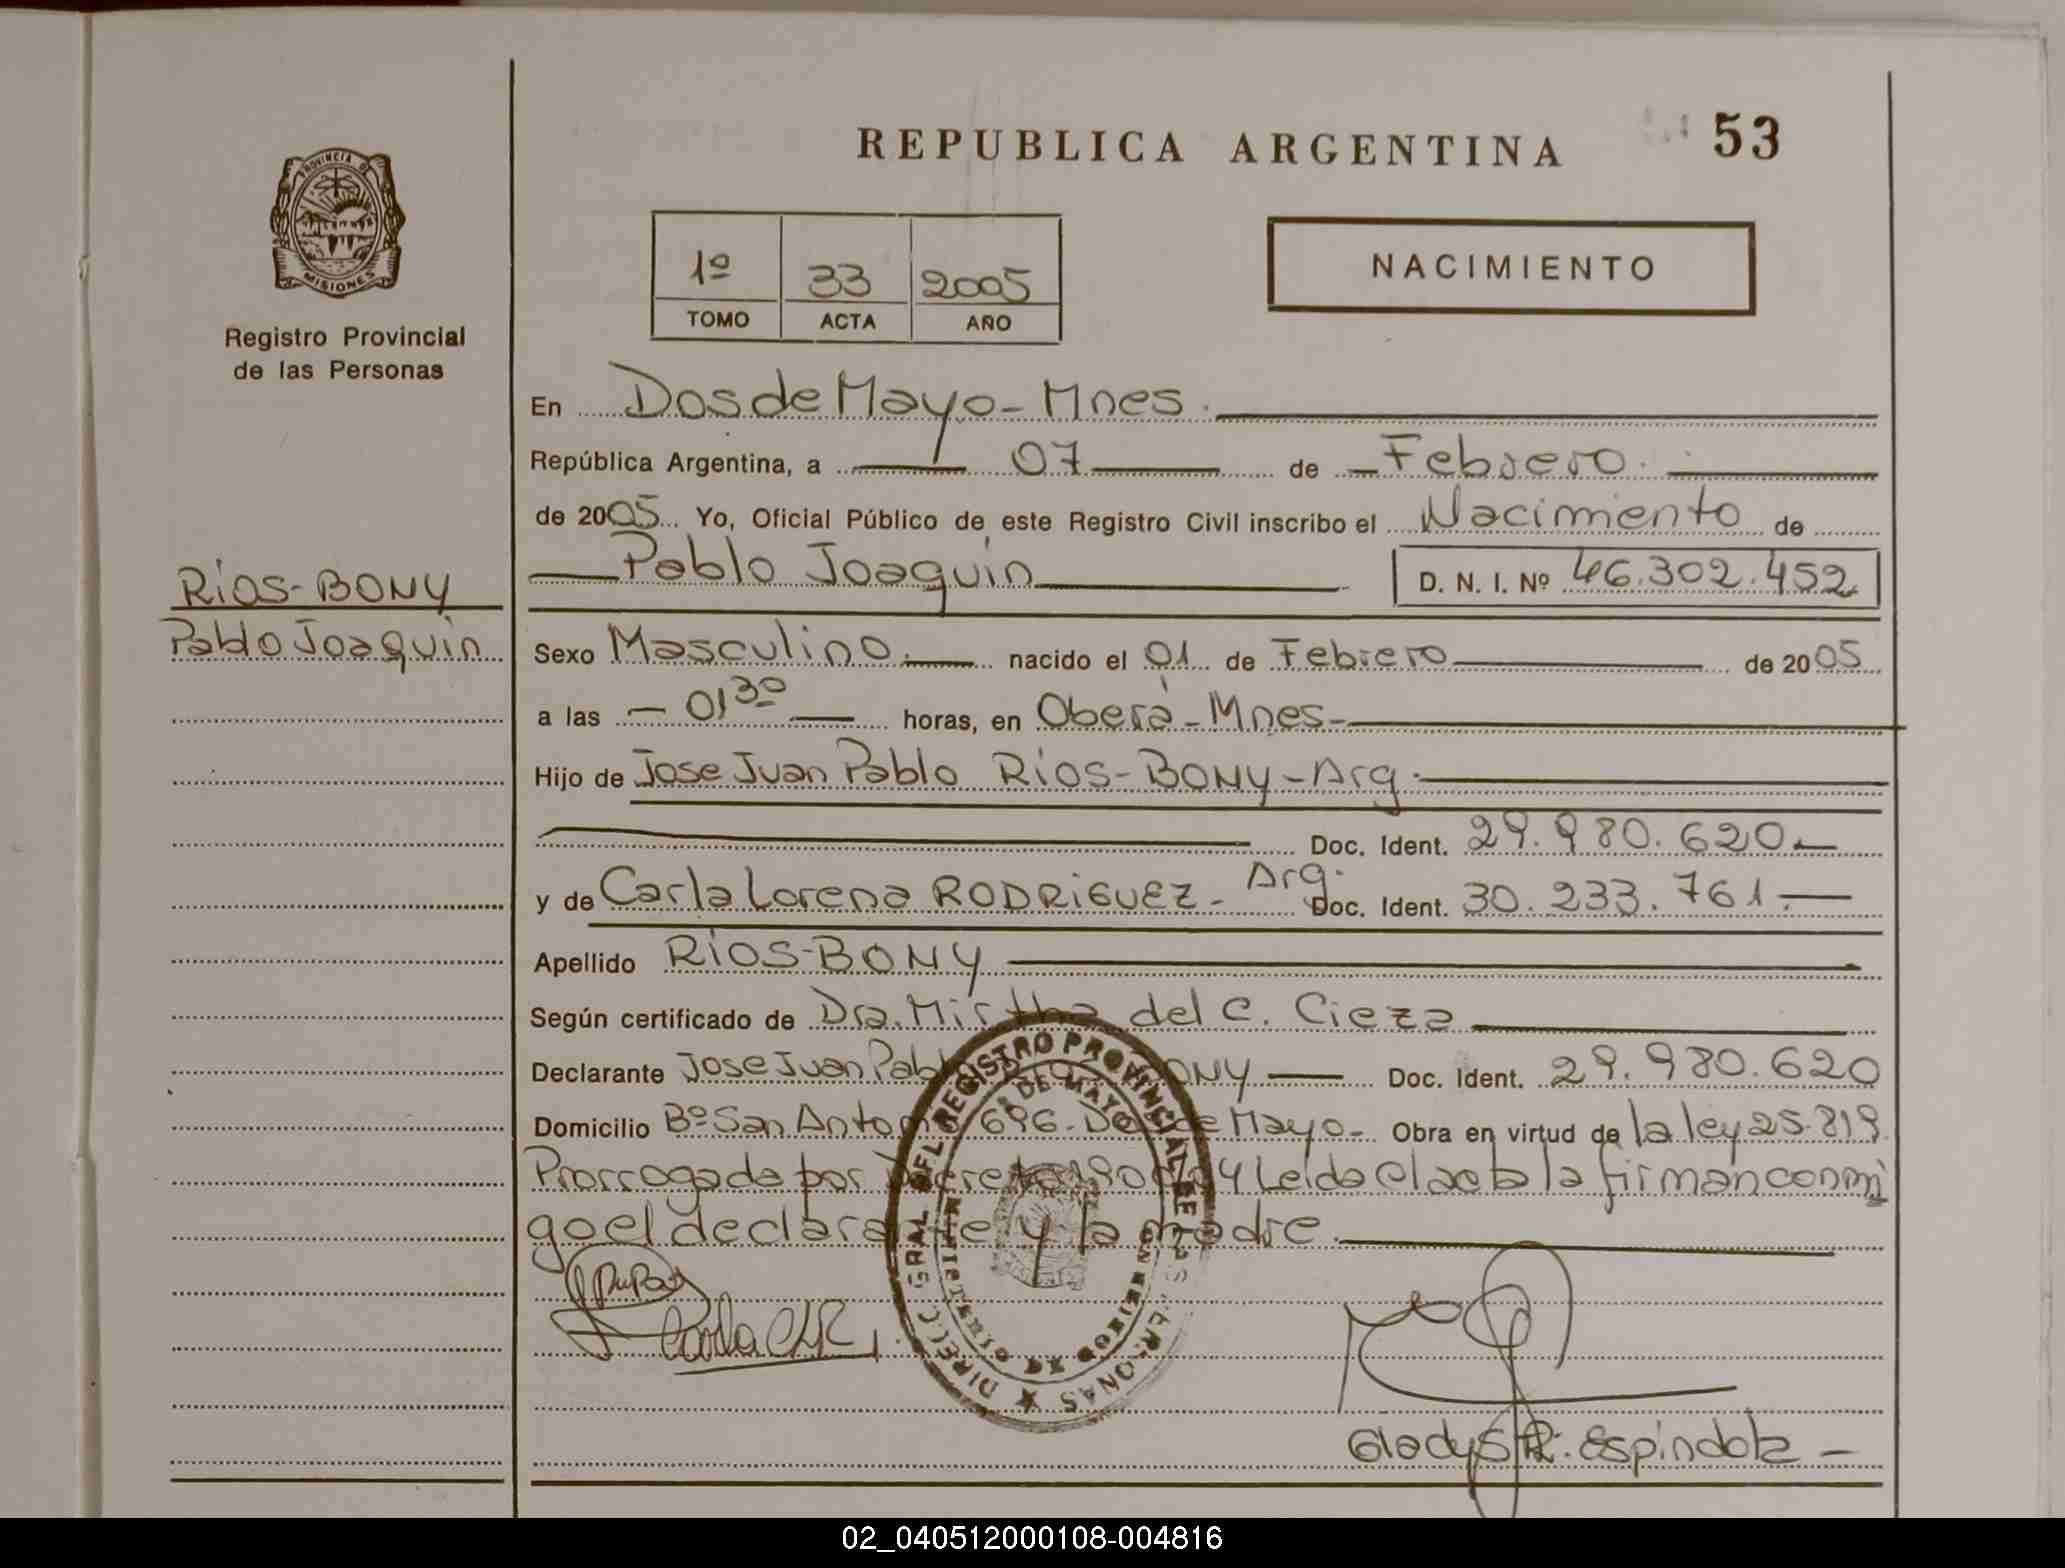 REPUBLICA ARGENTINA 53
PROVINCIA DE
MISIONES
Registro Provincial
de las Personas
1º 33 2005
TOMO ACTA AÑO
NACIMIENTO
En Dos de Mayo - Mnes.
República Argentina, a 07 de Febrero.
de 2005 Yo, Oficial Público de este Registro Civil inscribo el Nacimiento de
Pablo Joaquín D. N. I. Nº 46.302.452
RÍOS-BONY
Pablo Joaquín
Sexo Masculino. nacido el 01 de Febrero de 2005
a las - 01 30 horas, en Oberá - Mnes -
Hijo de Jose Juan Pablo RÍOS-BONY - Arg.
Doc. Ident. 29.980.620.
y de Carla Lorena RODRIGUEZ - Arg. Doc. Ident. 30.233.761.
Apellido RÍOS-BONY
Según certificado de Dra. Mirtha del C. Cieza
Declarante Jose Juan BONY Doc. Ident. 29.980.620
Domicilio Bº San Antonio 696 - Dos de Mayo - Obra en virtud de la ley 25.819
Prorrogada por Leída el acta la firman conmi
go el declarante y la madre.
DIRECC. GRAL. DEL REGISTRO PROVINCIAL DE LAS PERSONAS
DE MAYO
Gladys R. Espindola -
02_040512000108-004816